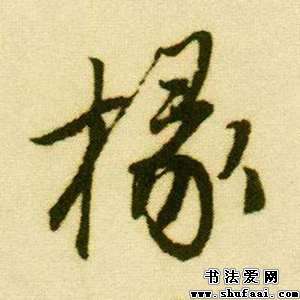 椽
书法爱网
www.shufaai.com